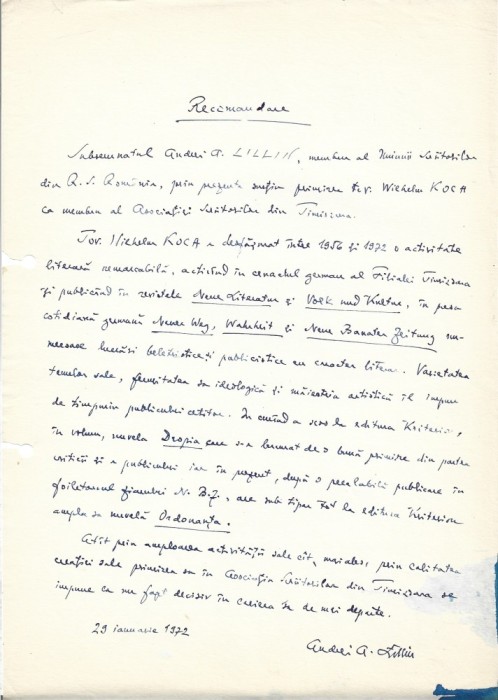 Recomandare
Subsemnatul Andrei A. LILLIN, membru al Uniunii Scriitorilor
din R.S. România, prin prezenta susțin primirea tov. Wilhelm KOCH
ca membru al Asociației Scriitorilor din Timișoara.
Tov. Wilhelm KOCH a desfășurat între 1956 și 1972 o activitate
literară remarcabilă, activînd în cenaclul german al Filialei Timișoara
și publicînd în revistele Neue Literatur și Volk und Kultur, în presa
cotidiană germană Neuer Weg, Wahrheit și Neue Banater Zeitung nu-
meroase lucrări beletristice și publicistice cu caracter literar. Varietatea
temelor sale, fermitatea sa ideologică și măiestria artistică îl impun
de timpuriu publicului cititor. În curînd a scos la editura Kriterion,
în volum, nuvela Dropia care s-a bucurat de o bună primire din partea
criticii și a publicului iar în prezent, după o prealabilă publicare în
foiletonul ziarului N.B.Z., are sub tipar tot la editura Kriterion
ampla sa nuvelă Ordonanța.
Atît prin amploarea activității sale cît, mai ales, prin calitatea
creației sale primirea sa în Asociația Scriitorilor din Timișoara se
impune ca un fapt decisiv în cariera sa de mai departe.
29 ianuarie 1972
Andrei A. Lillin